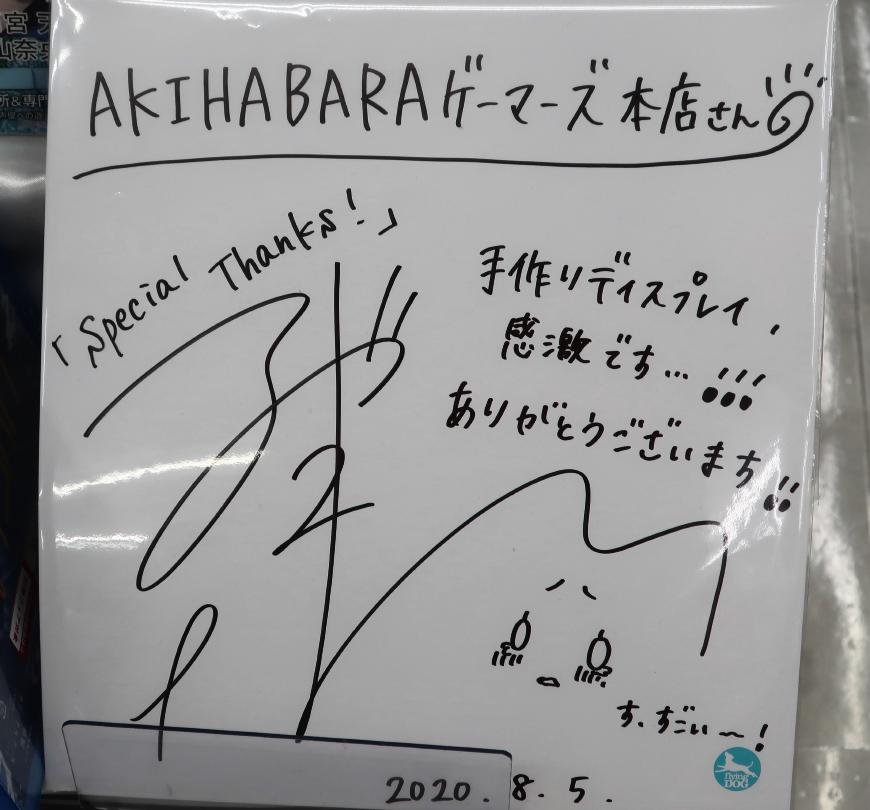 宮 天
山奈央
所&専門
AKIHABARAゲーマーズ 本店さん
「Special Thanks!」
手作りディスプレイ、
感激です…!!!
ありがとうございまち!!
す、すごぃ〜!
flying DOG
2020. 8. 5.